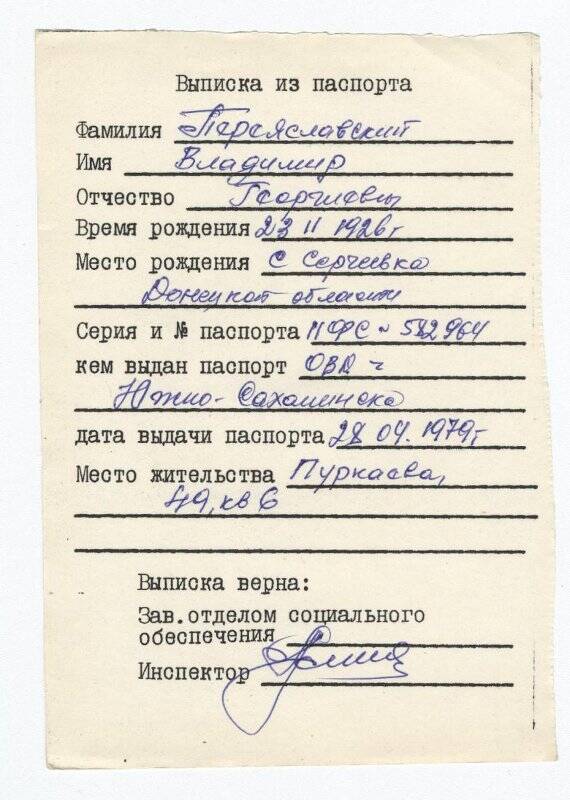 Выписка из паспорта
Фамилия Переяславский
Имя Владимир
Отчество Георгиевич
Время рождения 23 II 1926 г
Место рождения с Сергеевка
Донецкой области
Серия и № паспорта II ФС № 582964
кем выдан паспорт ОВД г
Южно-Сахалинска
дата выдачи паспорта 28 04. 1979 г
Место жительства Пуркаева,
49, кв 6
Выписка верна:
Зав. отделом социального
обеспечения
Инспектор